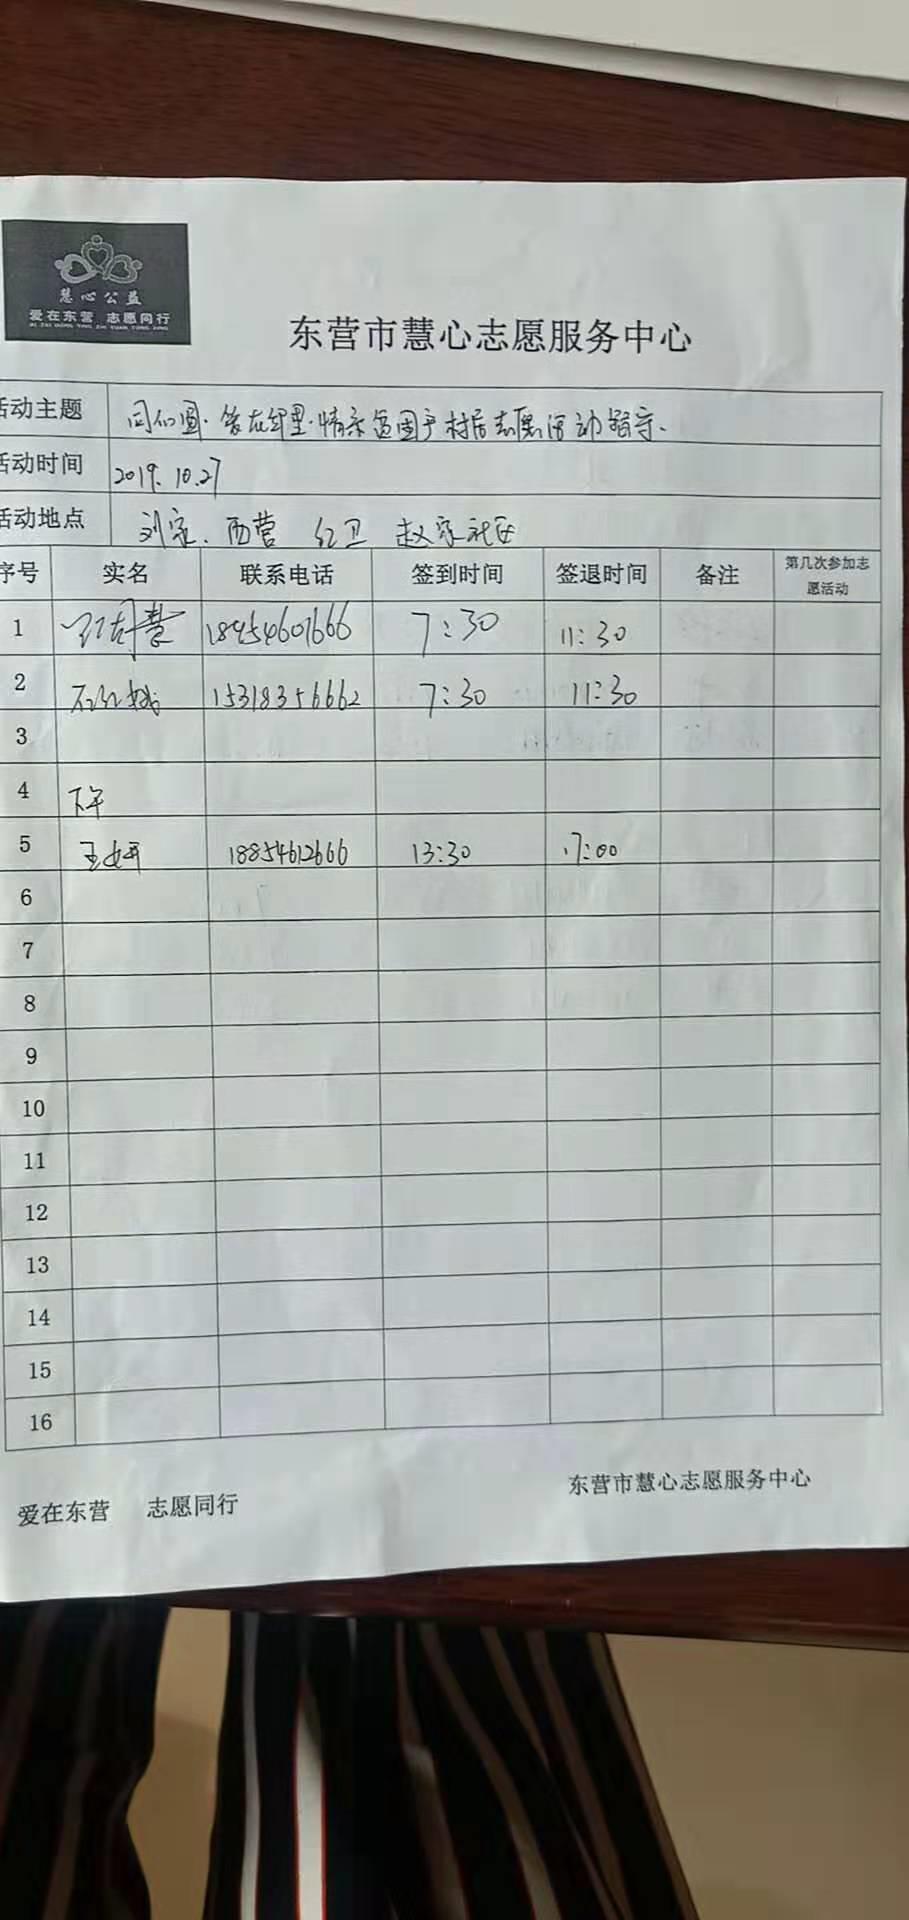 慧心公益
爱在东营 志愿同行
AI ZAI DONG YING ZHI YUAN TONG XING
东营市慧心志愿服务中心
活动主题 村居志愿活动
活动时间 2019.10.27
活动地点 刘家、西营 红卫 赵家社区
序号 实名 联系电话 签到时间 签退时间 备注 第几次参加志
愿活动
1 18954607666 7:30 11:30
2 15318356662 7:30 11:30
3
4 下午
5 王妍 18854612666 13:30 17:00
6
7
8
9
10
11
12
13
14
15
16
爱在东营 志愿同行
东营市慧心志愿服务中心